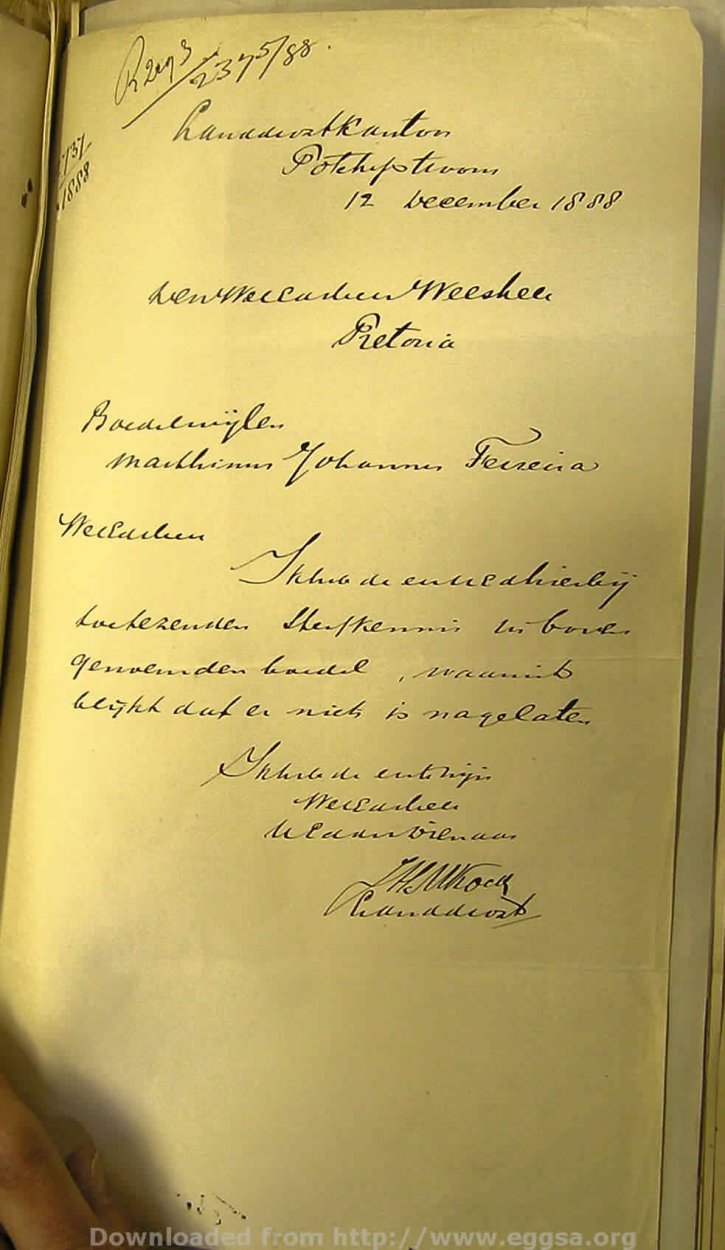 R2493/2375/88.
1888
Landdrostkantoor
Potchefstroom
12 December 1888
Den WelEdelen Heer Weesheer
Pretoria
Boedel wijlen
Marthinus Johannes Ferreira
WelEd.heer
Ik heb de eer UEd hierbij
toetezenden Sterfkennis in boven
genoemden boedel, waaruit
blijkt dat er niets is nagelaten
Ik heb de eer te zijn
WelEd.heer
UEd dw Dienaar
Landdrost
Downloaded from http://www.eggsa.org